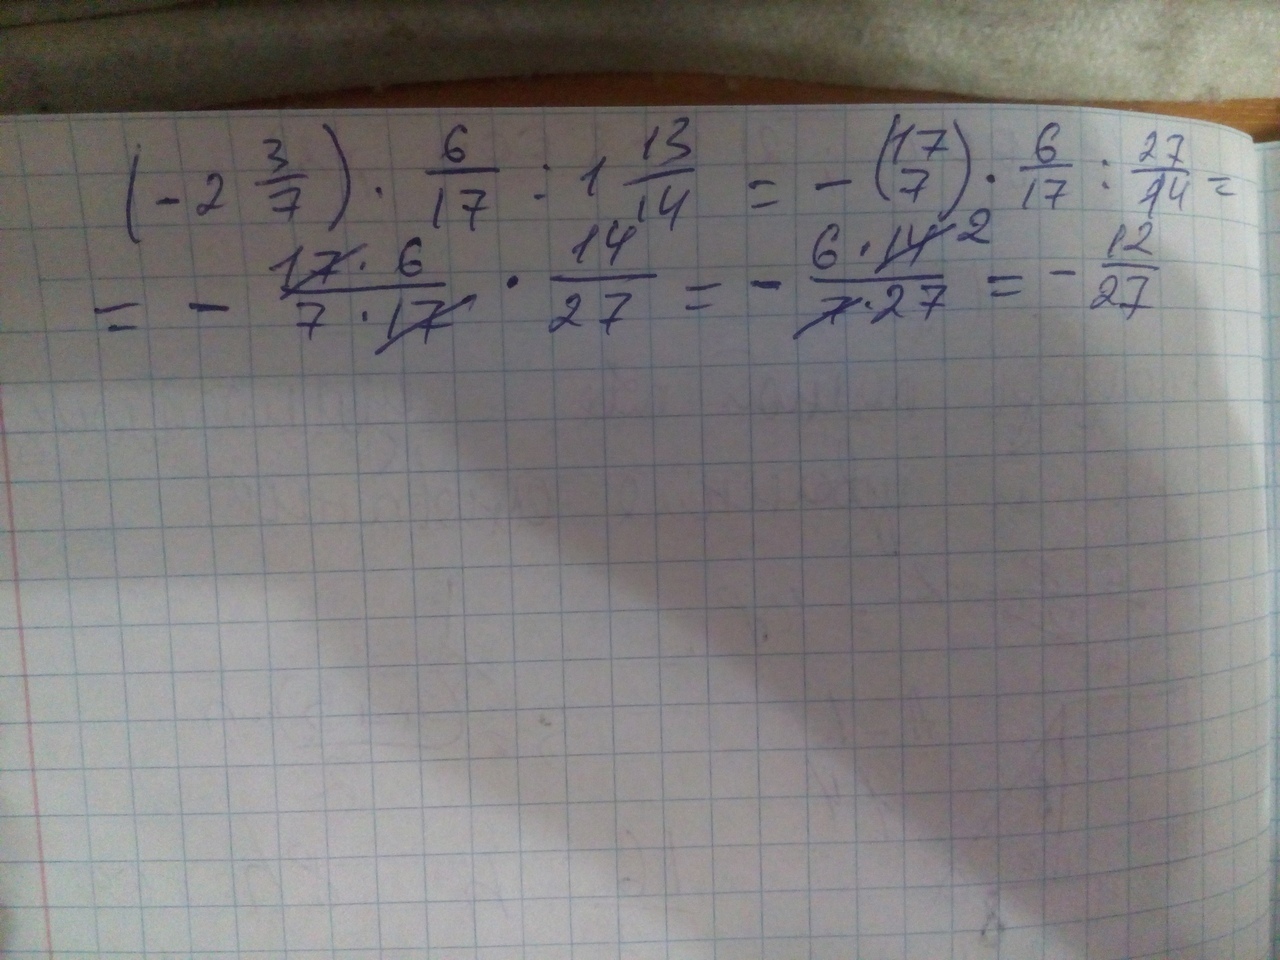 (-2 3/7) · 6/17 : 1 13/14 = -(17/7) · 6/17 : 27/14 =
= - 17·6/7·17 · 14/27 = - 6·14 2/7·27 = - 12/27